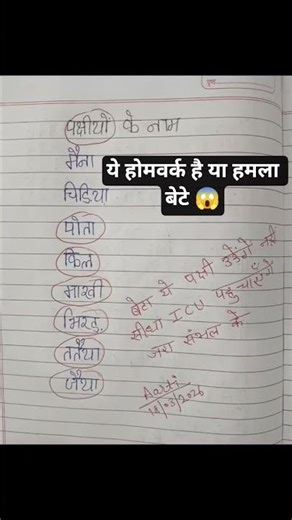 पक्षीयो के नाम
मैना
ये होमवर्क है या हमला
बेटे 😱
चिड़िया
पोता
किल
माखी
भिरड़
ततैया
जैया
बेटा ये पक्षी उड़ेंगे नही
सीधा ICU पहुचाएँगे
जरा संभल के
Aarti